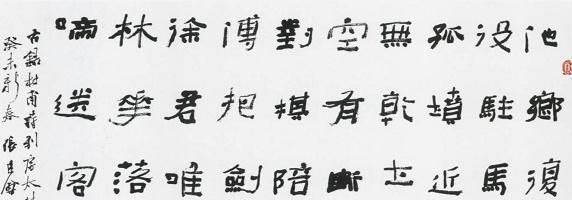 他鄉復
役駐馬
孤墳近
無乾土
空有斷
對棋陪
傅把劍
徐君唯
林花落
啼送客
右錄杜甫詩別房太
癸未新春 張